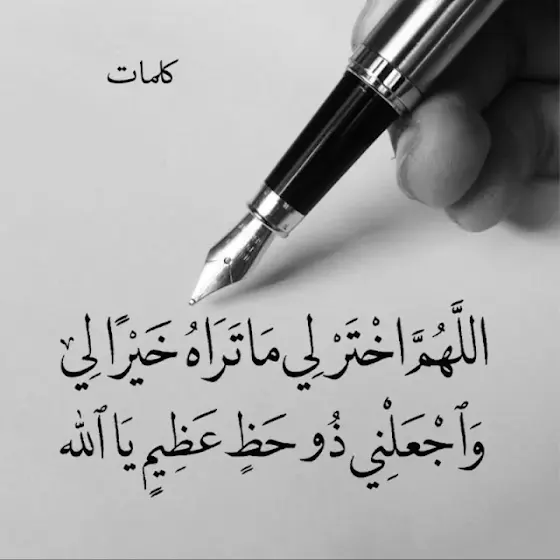 كلمات
اللَّهُمَّ اخْتَرْ لِي مَا تَرَاهُ خَيْرًا لِي
وَٱجْعَلْنِي ذُو حَظٍ عَظِيمٍ يَا ٱلله